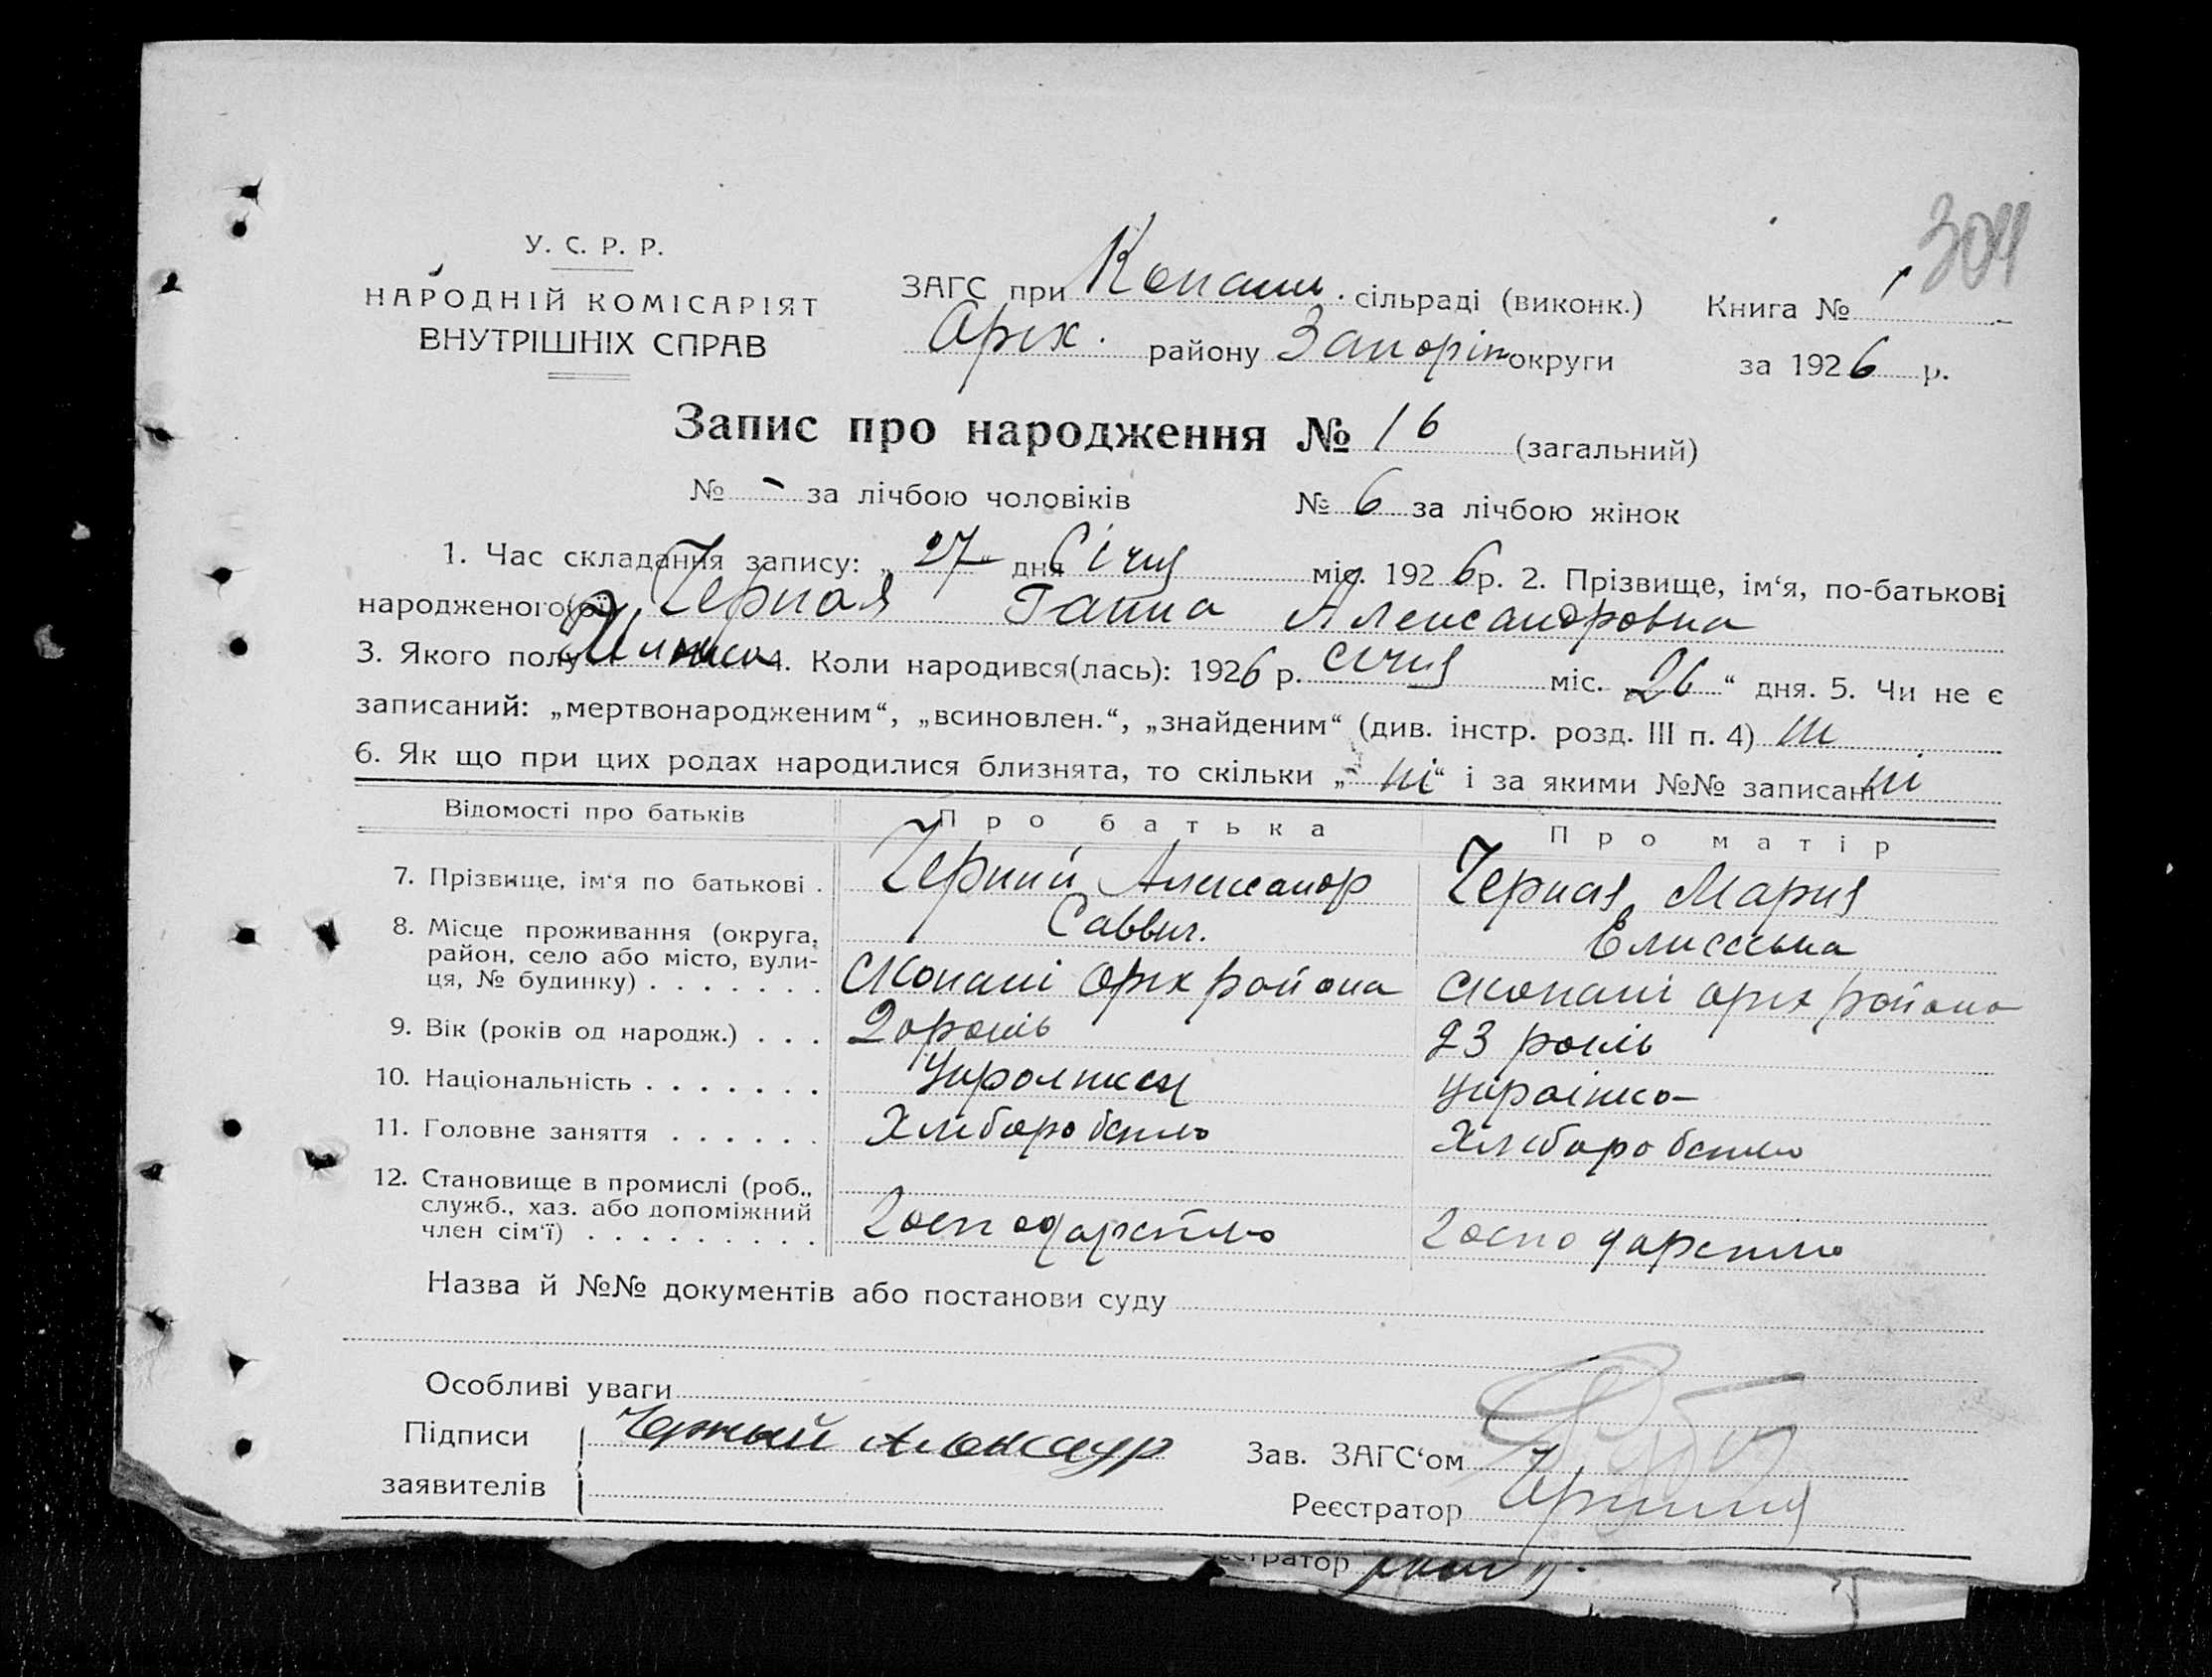 304
У. С. Р. Р.
НАРОДНІЙ КОМІСАРІЯТ
ВНУТРІШНІХ СПРАВ
ЗАГС при Копани. сільраді (виконк.) Книга № 1
Оріх. району Запоріж округи за 1926 р.
Запис про народження № 16 (загальний)
№ - за лічбою чоловіків № 6 за лічбою жінок
1. Час складання запису: „27“ дня Січня міс. 1926 р. 2. Прізвище, ім‘я, по-батькові
народженого(ої) Черная Ганна Александровна
3. Якого полу 4. Коли народився(лась): 1926 р. січня міс. „26“ дня. 5. Чи не є
записаний: „мертвонародженим“, „всиновлен.“, „знайденим“ (див. інстр. розд. III п. 4) ні
6. Як що при цих родах народилися близнята, то скільки „ні“ і за якими №№ записані ні
Відомості про батьків Про батька Про матір
7. Прізвище, ім‘я по батькові . Черний Александр Черная Мария
Саввич. Елисеевна
8. Місце проживання (округа, район, село або місто, вулиця, № будинку) . . . . . . . с Копані Оріх района с Копані оріх района
9. Вік (років од народж.) . . . 20 років 23 років
10. Національність . . . . . . . Украінка
11. Головне заняття . . . . . . Хліборобство Хліборобство
12. Становище в промислі (роб., служб., хаз. або допоміжний член сім‘ї) . . . . . . . . . Господарство Господарство
Назва й №№ документів або постанови суду
Особливі уваги
Підписи заявителів Черный Александр
Зав. ЗАГС‘ом
Реєстратор